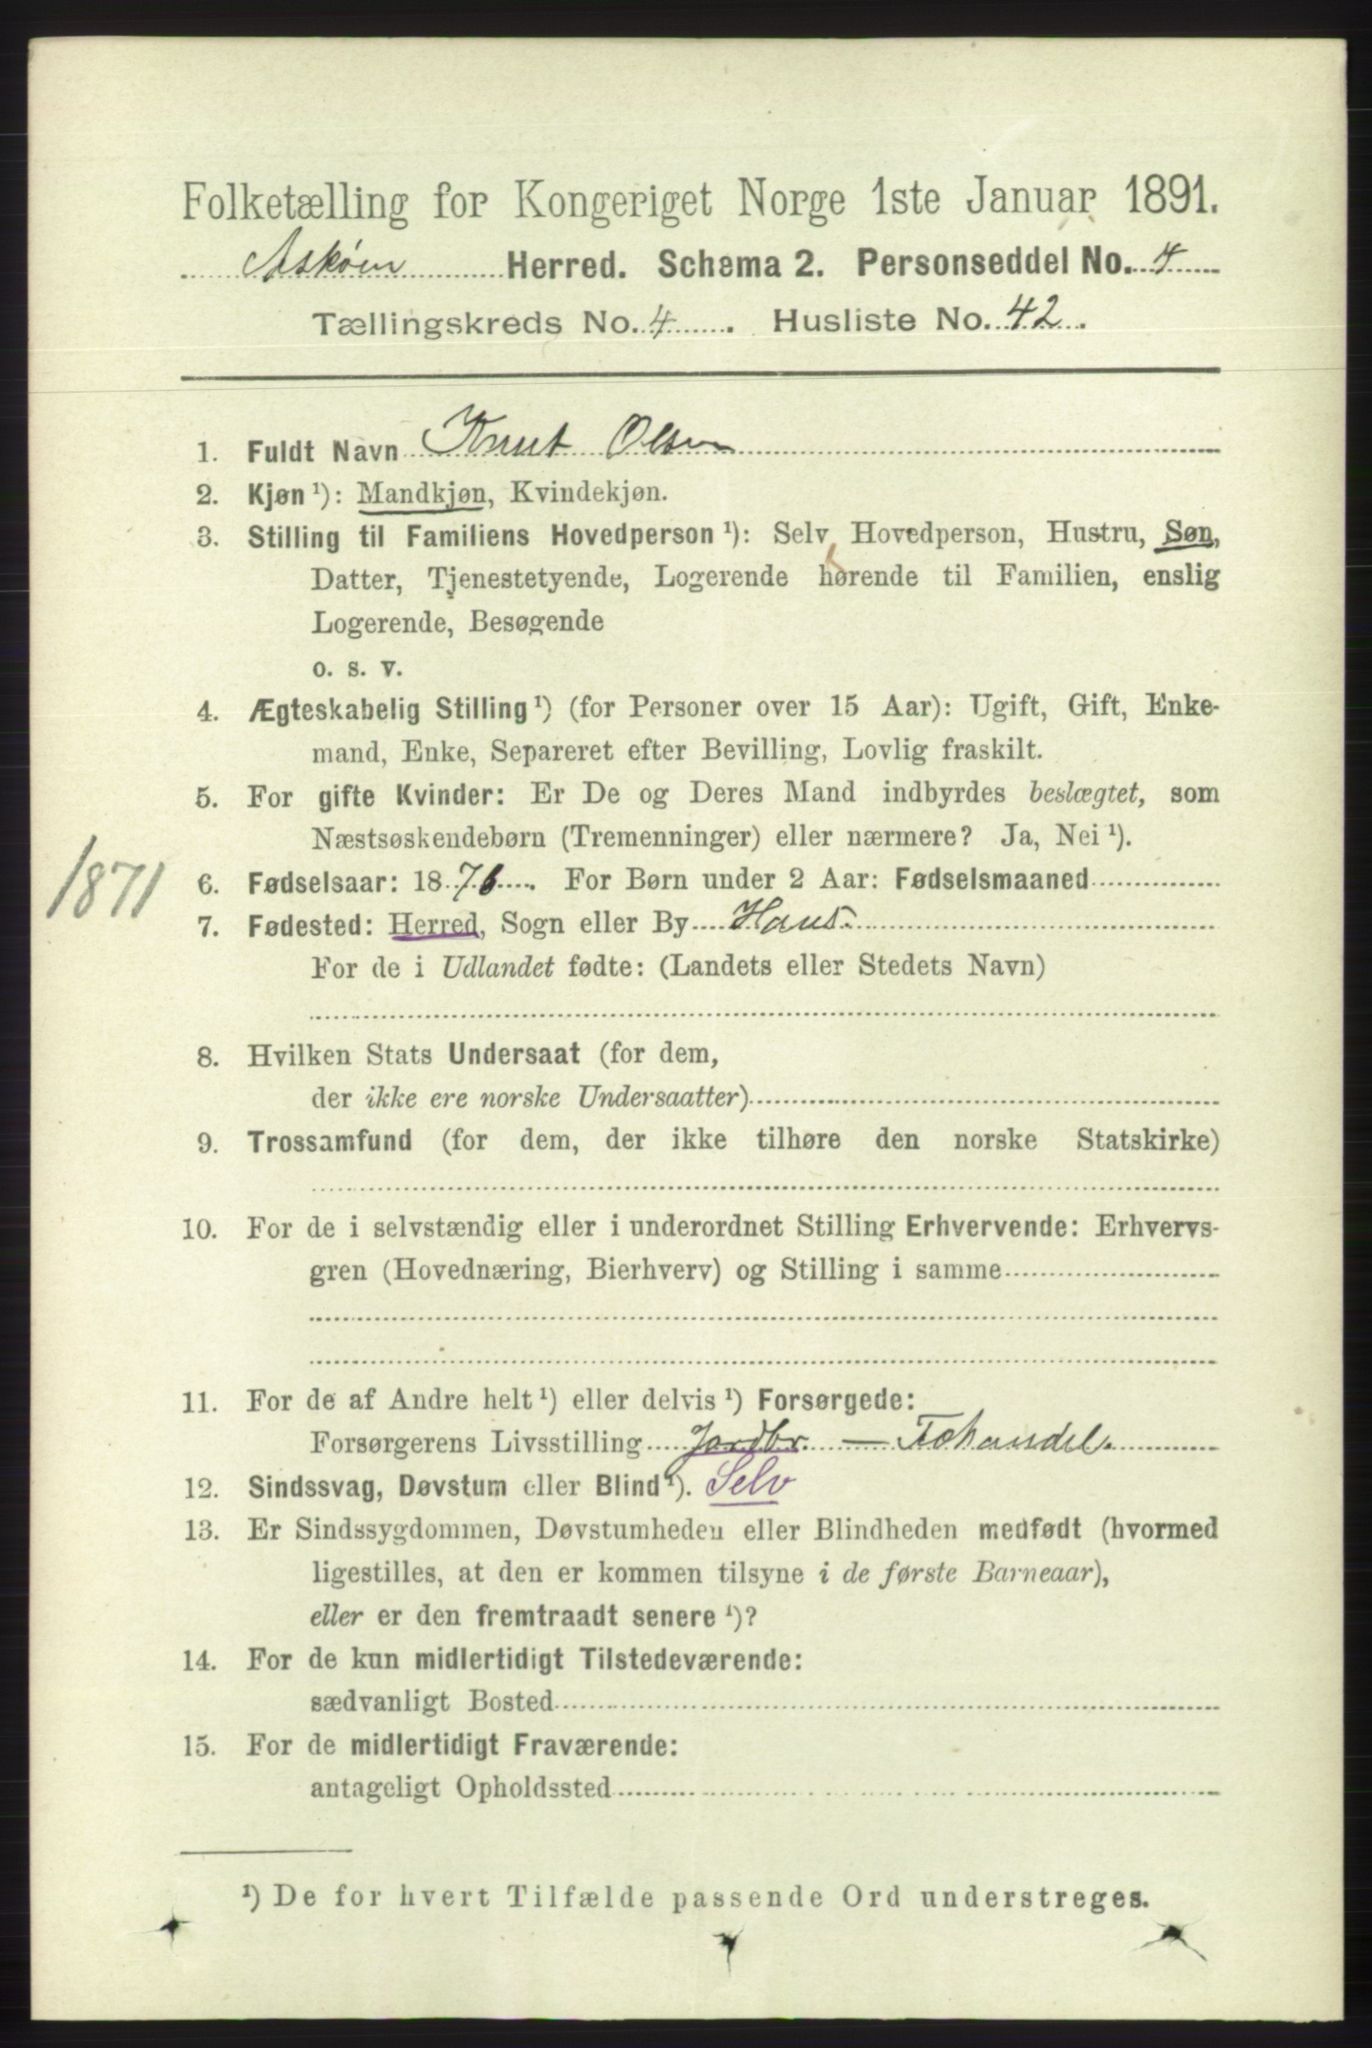 Folketælling for Kongeriget Norge 1ste Januar 1891.
Askøen Herred. Schema 2. Personseddel No. 4
Tællingskreds No. 4. Husliste No. 42.
1. Fuldt Navn Knut Olsen
2. Kjøn ¹): Mandkjøn, Kvindekjøn.
3. Stilling til Familiens Hovedperson ¹): Selv Hovedperson, Hustru, Søn,
Datter, Tjenestetyende, Logerende hørende til Familien, enslig
Logerende, Besøgende
o. s. v.
4. Ægteskabelig Stilling ¹) (for Personer over 15 Aar): Ugift, Gift, Enke-
mand, Enke, Separeret efter Bevilling, Lovlig fraskilt.
5. For gifte Kvinder: Er De og Deres Mand indbyrdes beslægtet, som
Næstsøskendebørn (Tremenninger) eller nærmere? Ja, Nei ¹).
1871
6. Fødselsaar: 1876. For Børn under 2 Aar: Fødselsmaaned
7. Fødested: Herred, Sogn eller By Haus.
For de i Udlandet fødte: (Landets eller Stedets Navn)
8. Hvilken Stats Undersaat (for dem,
der ikke ere norske Undersaatter)
9. Trossamfund (for dem, der ikke tilhøre den norske Statskirke)
10. For de i selvstændig eller i underordnet Stilling Erhvervende: Erhvervs-
gren (Hovednæring, Bierhverv) og Stilling i samme
11. For de af Andre helt ¹) eller delvis ¹) Forsørgede:
Forsørgerens Livsstilling Jordbr. — Fæhandel.
12. Sindssvag, Døvstum eller Blind ¹). Selv
13. Er Sindssygdommen, Døvstumheden eller Blindheden medfødt (hvormed
ligestilles, at den er kommen tilsyne i de første Barneaar),
eller er den fremtraadt senere ¹)?
14. For de kun midlertidigt Tilstedeværende:
sædvanligt Bosted
15. For de midlertidigt Fraværende:
antageligt Opholdssted
¹) De for hvert Tilfælde passende Ord understreges.